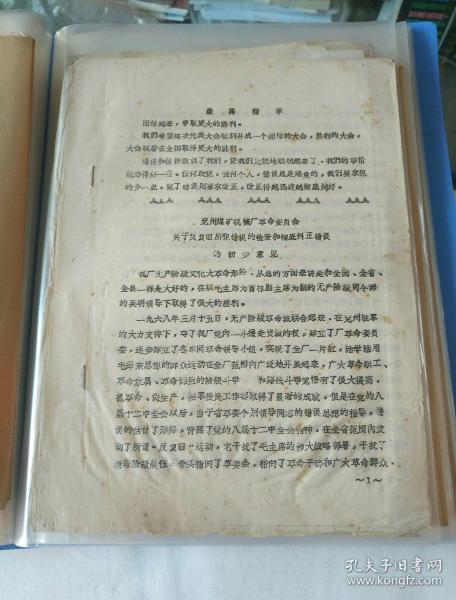 最高指示
团结起来，争取更大的胜利。
我们希望这次代表大会能够开成一个团结的大会，胜利的大会，
大会以后在全国取得更大的胜利。
错误和挫折教训了我们，使我们比较地聪明起来了，我们的事情
就办得好一些。任何政党，任何个人，错误总是难免的，我们要求犯
的少一点。犯了错误则要求改正，改正得越迅速越彻底越好。
兖州煤矿机械厂革命委员会
关于反复旧所犯错误的检查和彻底纠正错误
的初步意见
我厂无产阶级文化大革命形势，从总的方面来讲是和全国、全省、
全县一样是大好的，在以毛主席为首林副主席为副的无产阶级司令部
的英明领导下取得了很大的胜利。
一九六八年三月十五日，无产阶级革命派联合起来，在兖州驻军
的大力支持下，夺了我厂党内一小撮走资派的权，建立了厂革命委员
会，逐步建立了各车间革命领导小组，实现了全厂一片红，活学活用
毛泽东思想的群众运动在全厂范围内广泛地开展起来，广大革命职工、
革命家属、革命师生的阶级斗争 和路线斗争觉悟有了很大提高，
抓革命、促生产，各项工作都取得了显著的成就，但是在党的八
届十二中全会以后，由于省革委个别领导同志的错误思想的指导，错误
的估计了形势，背离了党的八届十二中全会精神，在全省范围内发
动了所谓"反复旧"运动，它干扰了毛主席的伟大战略部署，干扰了
清理阶级队伍，矛头指向了革委会，指向了革命干部和广大革命群众、
～1～
孔夫子旧书网
www.kongfz.com